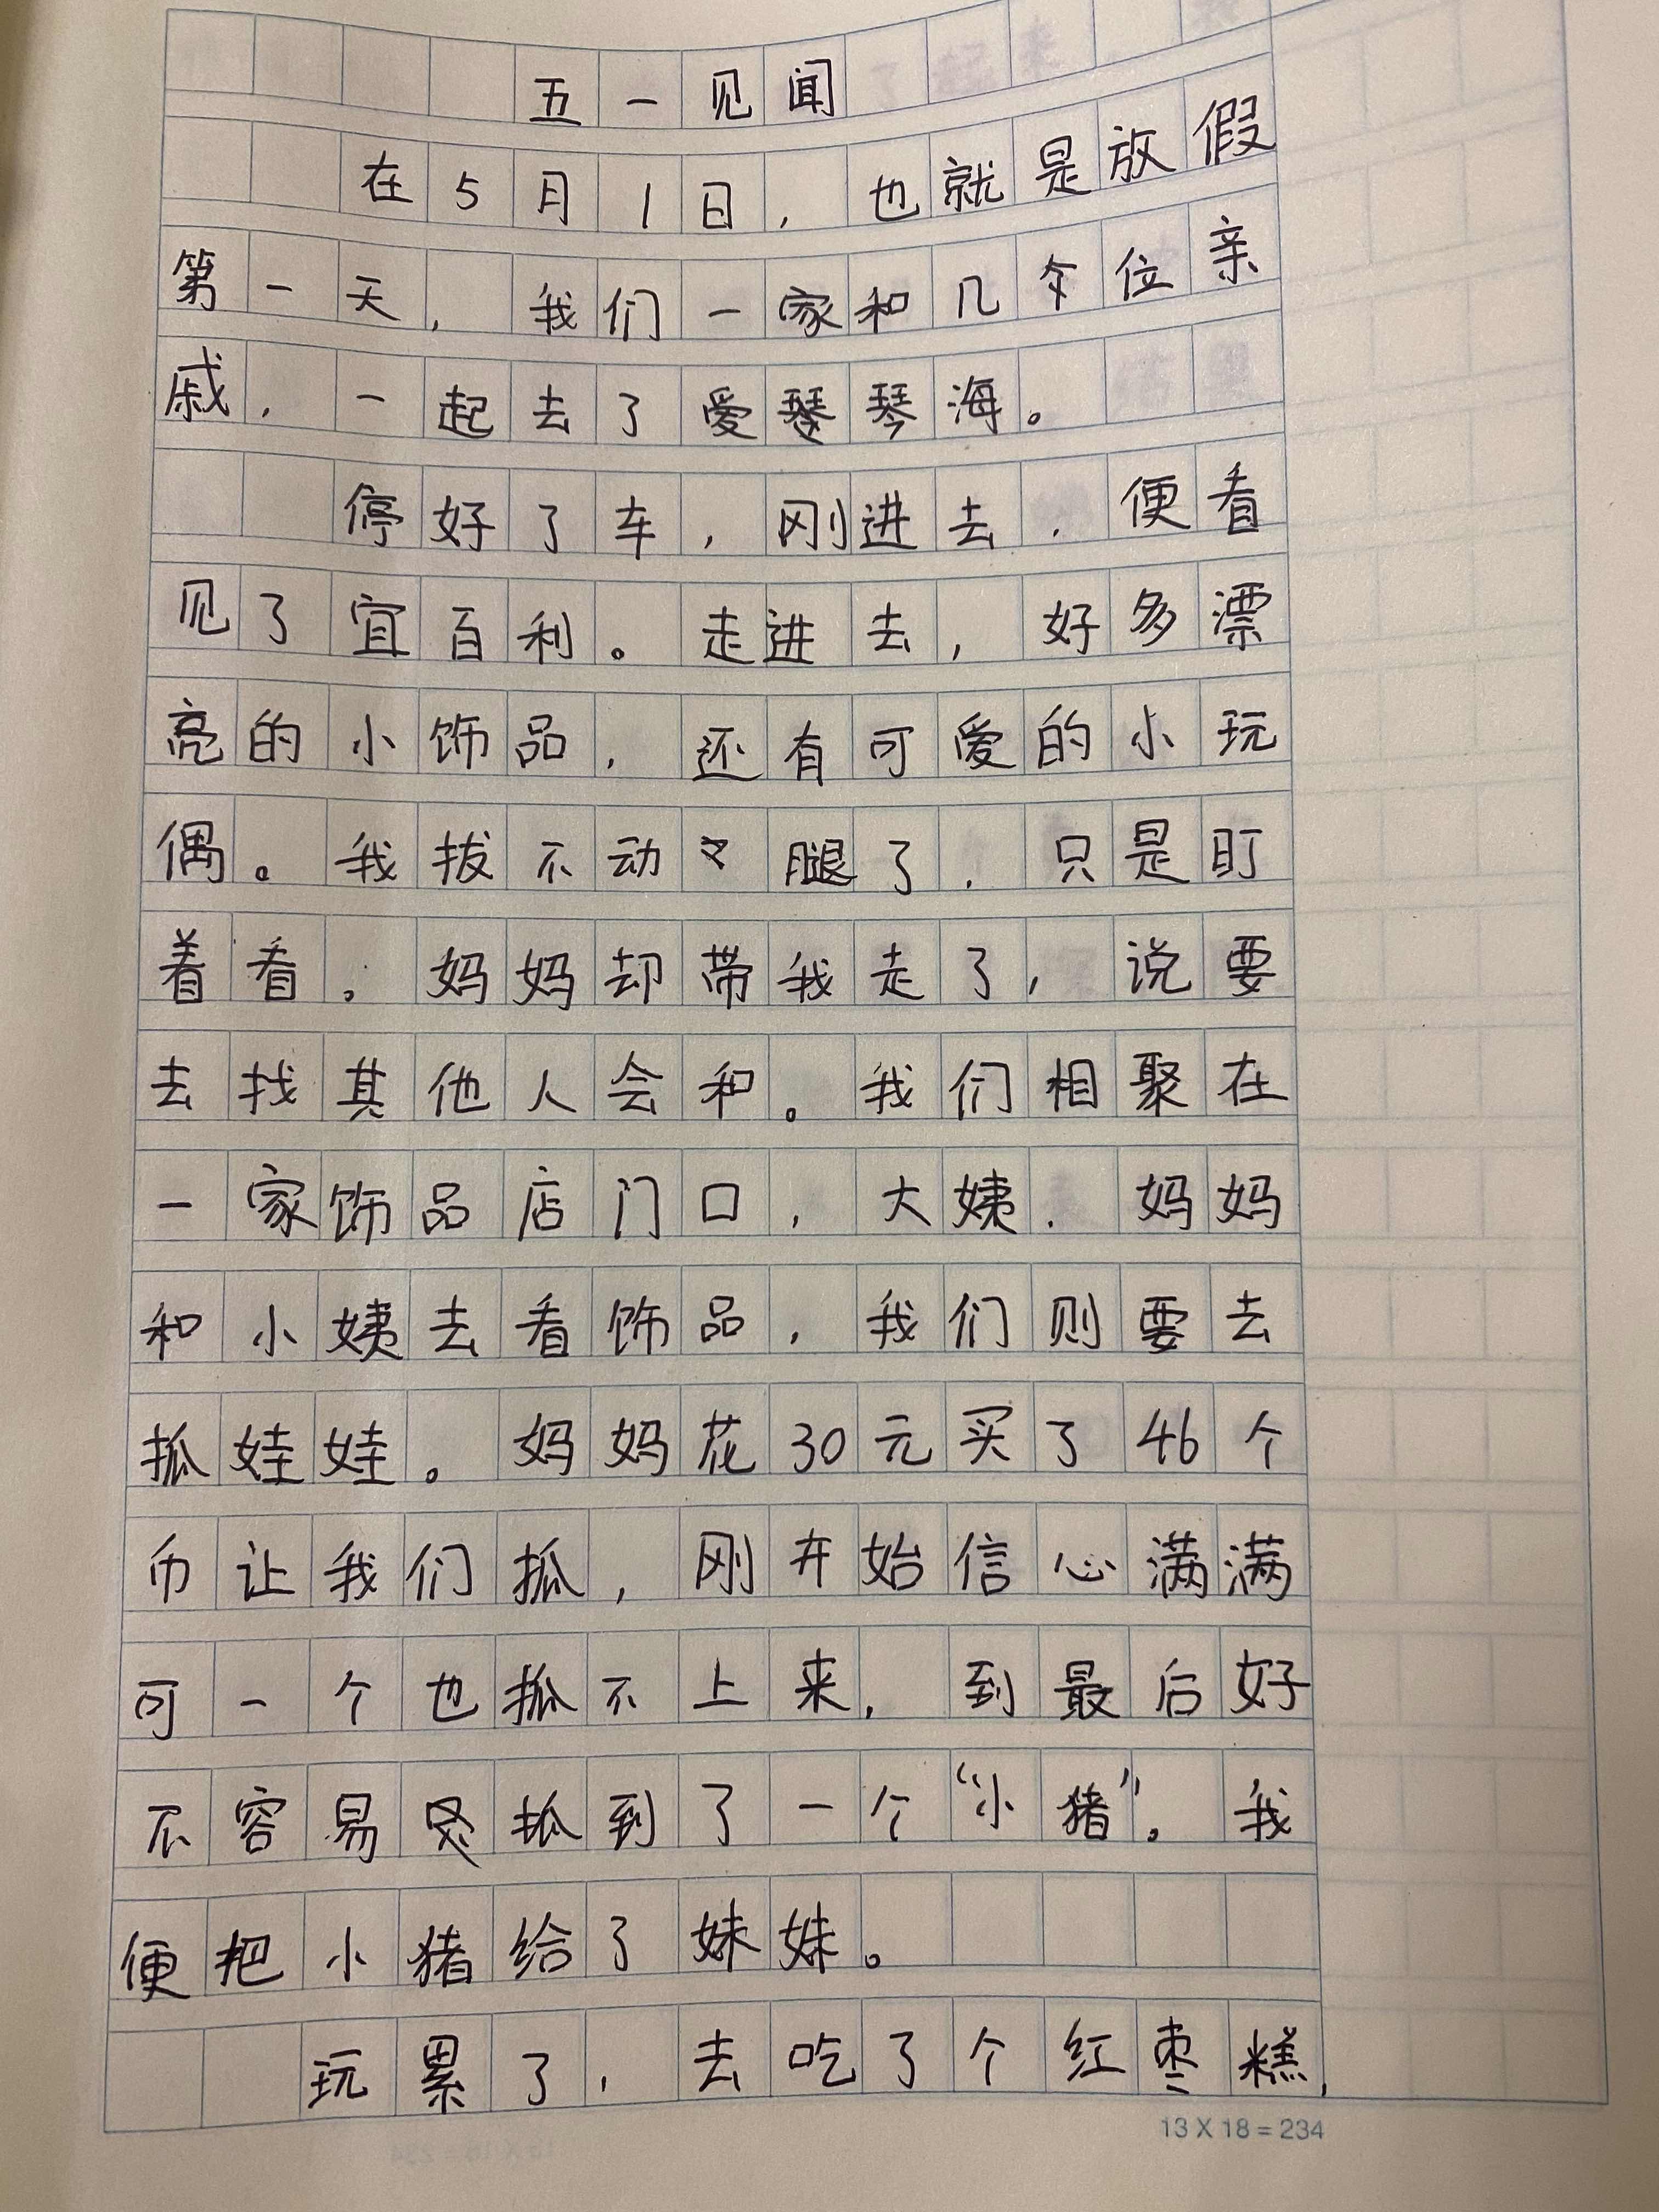 五一见闻
在5月1日，也就是放假
第一天，我们一家和几位亲
戚，一起去了爱琴海。
停好了车，刚进去，便看
见了宜百利。走进去，好多漂
亮的小饰品，还有可爱的小玩
偶。我拔不动腿了，只是盯
着看。妈妈却带我走了，说要
去找其他人会和。我们相聚在
一家饰品店门口，大姨，妈妈
和小姨去看饰品，我们则要去
抓娃娃。妈妈花30元买了46个
币让我们抓，刚开始信心满满
可一个也抓不上来，到最后好
不容易抓到了一个“小猪”。我
便把小猪给了妹妹。
玩累了，去吃了个红枣糕，
13 X 18 = 234